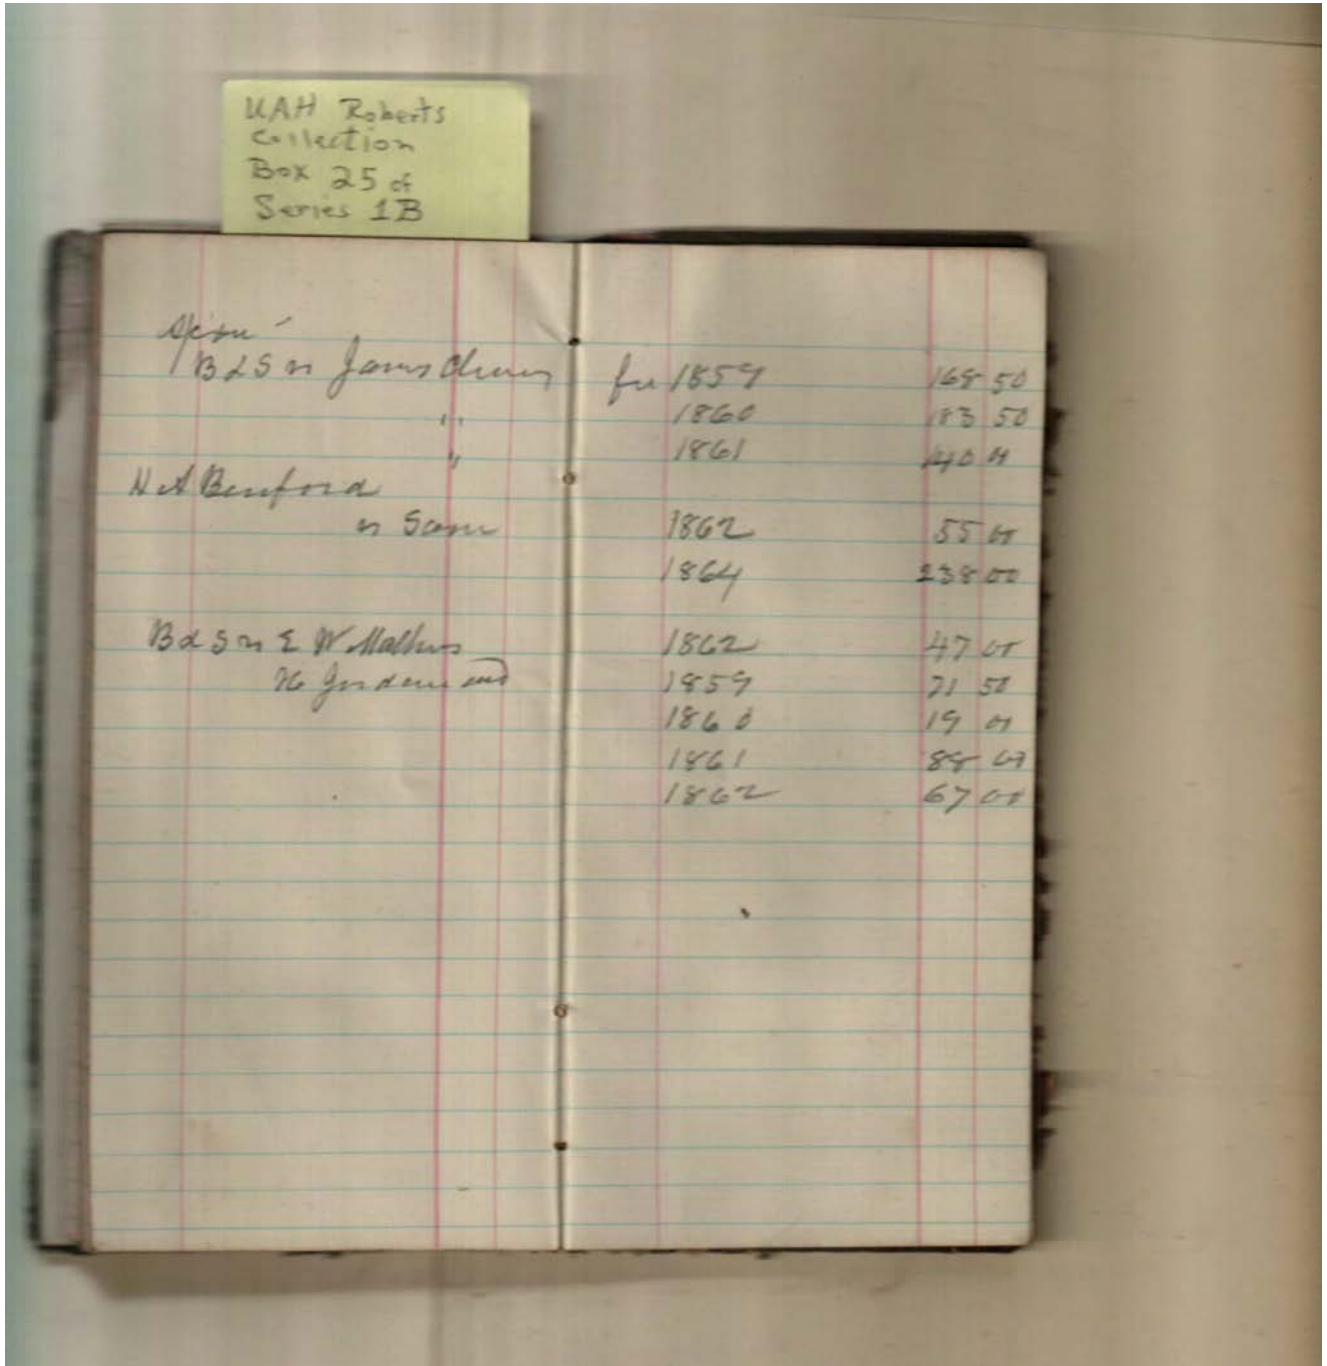 UAH Roberts
Collection
Box 25 of
Series 1B
B & S vs James 1859 168 50
" 1860 183 50
" 1861 40 00
H A Benford
vs Same 1862 55 00
1864 238 00
B & S vs E W Mathews 1862 47 00
1859 21 50
1860 19 00
1861 88 00
1862 67 00